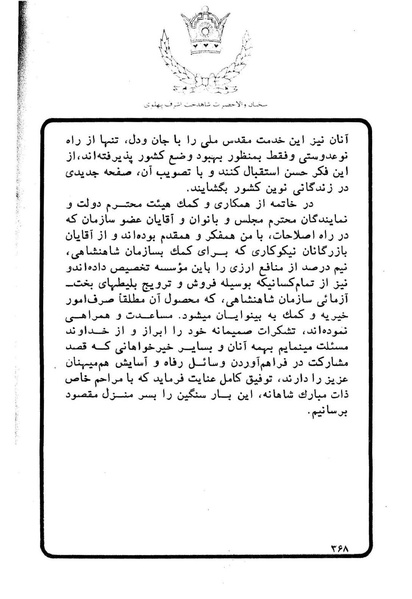 سخنان والاحضرت شاهدخت اشرف پهلوی
آنان نیز این خدمت مقدس ملی را با جان ودل، تنها از راه
نوعدوستی وفقط بمنظور بهبود وضع کشور پذیرفته‌اند، از
این فکر حسن استقبال کنند و با تصویب آن، صفحه جدیدی
در زندگانی نوین کشور بگشایند.
در خاتمه از همکاری و کمك هیئت محترم دولت و
نمایندگان محترم مجلس و بانوان و آقایان عضو سازمان که
در راه اصلاحات، با من همفکر و همقدم بوده‌اند و از آقایان
بازرگانان نیکوکاری که برای کمك بسازمان شاهنشاهی،
نیم درصد از منافع ارزی را باین مؤسسه تخصیص داده‌اندو
نیز از تمام‌کسانیکه بوسیله فروش و ترویج بلیطهای بخت‌ـ
آزمائی سازمان شاهنشاهی، که محصول آن مطلقاً صرف‌امور
خیریه و کمك به بینوایان میشود. مساعدت و همراهی
نموده‌اند، تشکرات صمیمانه خود را ابراز و از خداوند
مسئلت مینمایم بهمه آنان و بسایر خیرخواهانی که قصد
مشارکت در فراهم‌آوردن وسائل رفاه و آسایش هم‌میهنان
عزیز را دارند، توفیق کامل عنایت فرماید که با مراحم خاص
ذات مبارك شاهانه، این بار سنگین را بسر منزل مقصود
برسانیم.
۳۶۸